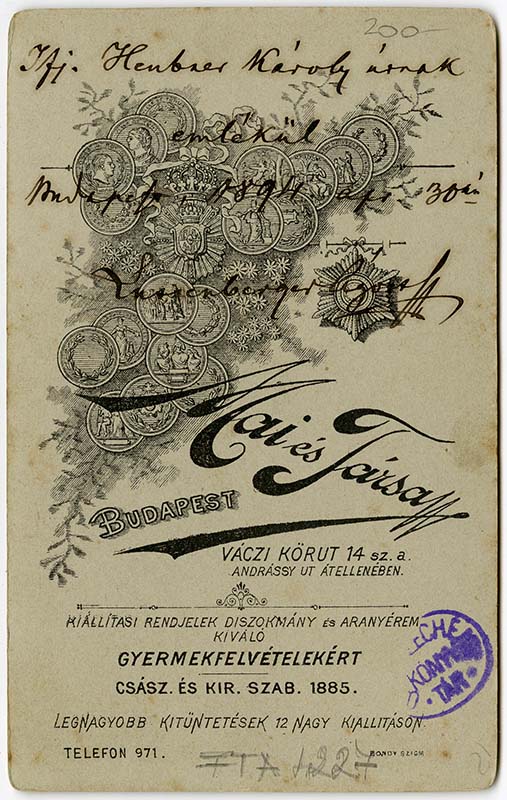 200-
Ifj. Heubner Károly úrnak
emlékül
Budapest, 1894 apr 30án
Mai és Társa
BUDAPEST
VÁCZI KÖRUT 14 sz. a.
ANDRÁSSY UT ÁTELLENÉBEN.
KIÁLLITASI RENDJELEK DISZOKMÁNY és ARANYÉREM
KIVÁLÓ
GYERMEKFELVÉTELEKÉRT
CSÁSZ. ÉS KIR. SZAB. 1885.
LEGNAGYOBB KITÜNTETÉSEK 12 NAGY KIALLITÁSON.
TELEFON 971.
BONDY ZSIGM
KÖNYV
TÁR
FTA 1227